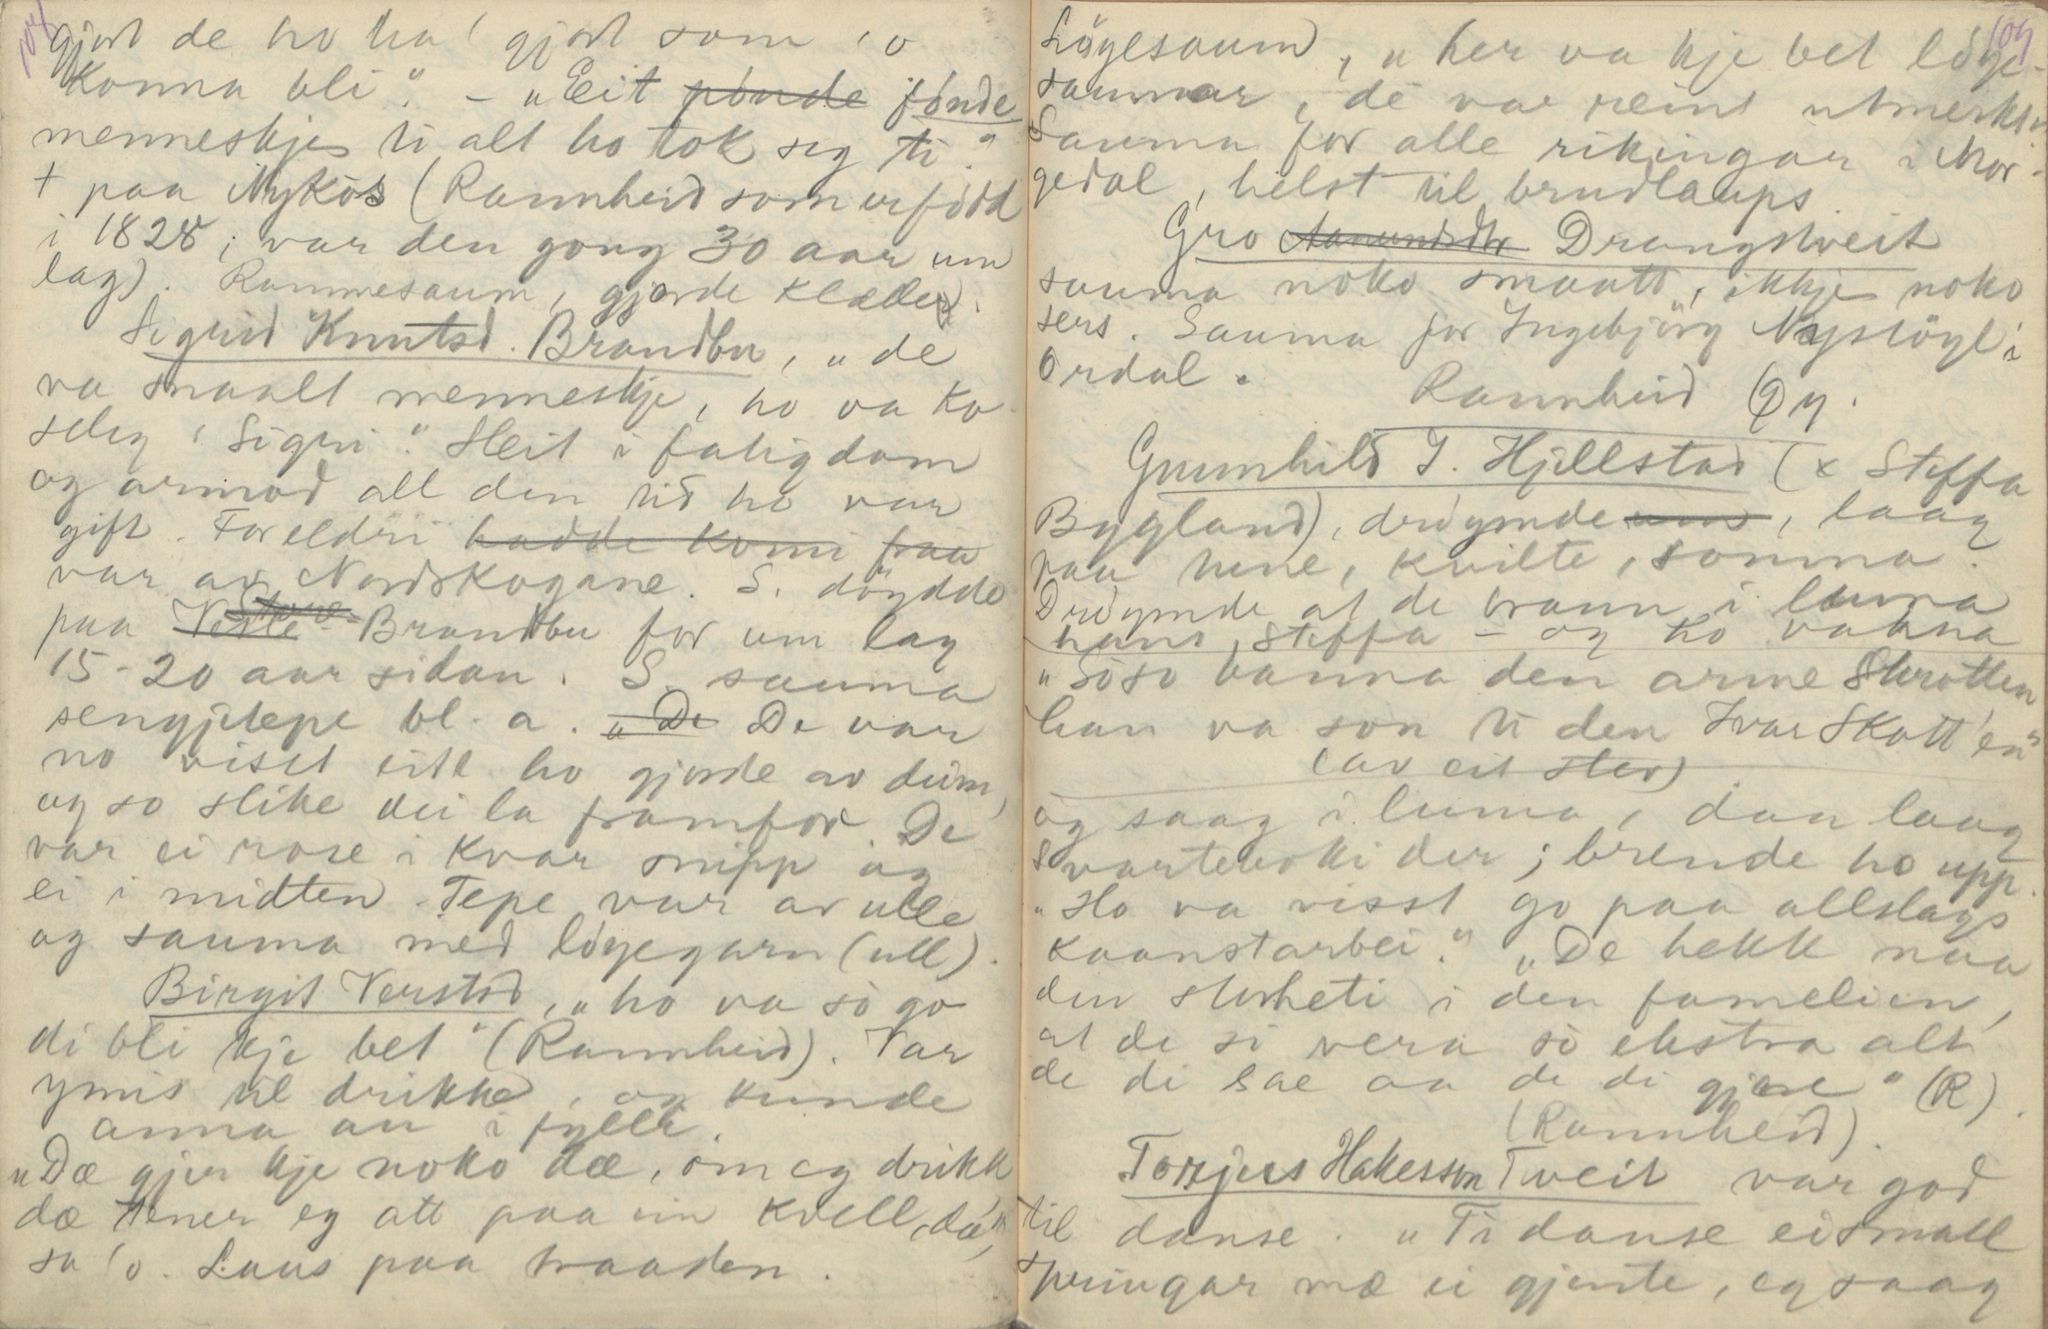 gjort de ho ha' gjort som 'o
konna bli." – „Eit pónde fónde
menneskje ti alt ho tok seg ti."
+ paa Nykós (Rannheid som er fódd
i 1828, var den gong 30 aar um
lag). Rammesaum, gjorde klæde.
Sigrid Knutsd. Brandbu, „de
va snaalt menneskje, ho va ko
seleg 'Sigri". Sleit i fatigdom
og armod all den tid ho var
gift. Foreldri hadde komi fraa
var av Nordskogane. S. döydde
paa Vesle Store Brandbu for um lag
15-20 aar sidan. S. sauma
sengjetepe bl. a. „De De var
no visst eitt ho gjorde av deim,
og so slike dei la framfor. De
var ei rose i kvar snipp og
ei i midten. Tepe var av ulle
og sauma med lógegarn (ull).
Birgit Verstad, „ho va só go
di bli kje bet" (Rannheid). Var
ymis til drikke, og kunde
anna an i fylli.
„Dæ gjer kje noko dæ, om eg drikk
dæ tener eg att paa ein kvell, dá",
sa 'o. Laus paa traaden.
109
Lögesaum, „her va kje bet lóge-
saumar, de var reint utmerkt"
Sauma for alle rikingar i Mor-
gedal, helst til brudlaups
Gro Aanundsdtr Drangstveit
sauma noko smaatt, ikkje noko
sers. Sauma for Ingebjörg Nystögl i
Ordal.
Rannheid Öy.
Gunnhild I. Hjellstad (x Steffa
Bygland), dróymde, laag
paa hene, kvilte, somna.
Dróymde at de brann i luma
hans Steffa – og ho vakna
„Sóso banna den arme Skrotten
han va son ti den Ivar Skott'en"
(av eit stev)
og saag i luma, daa laag
svarteboki der; brende ho upp.
„Ho va visst go paa allslags
kaanstarbei." „De hekk naa
den storheti i den famelien,
at de si vera só ekstra alt
de di sae aa de di gjore" (R).
(Rannheid).
Torjus Hakesson Tveit var god
til danse. „Ti danse ei small
springar mæ ei gjente, eg saag